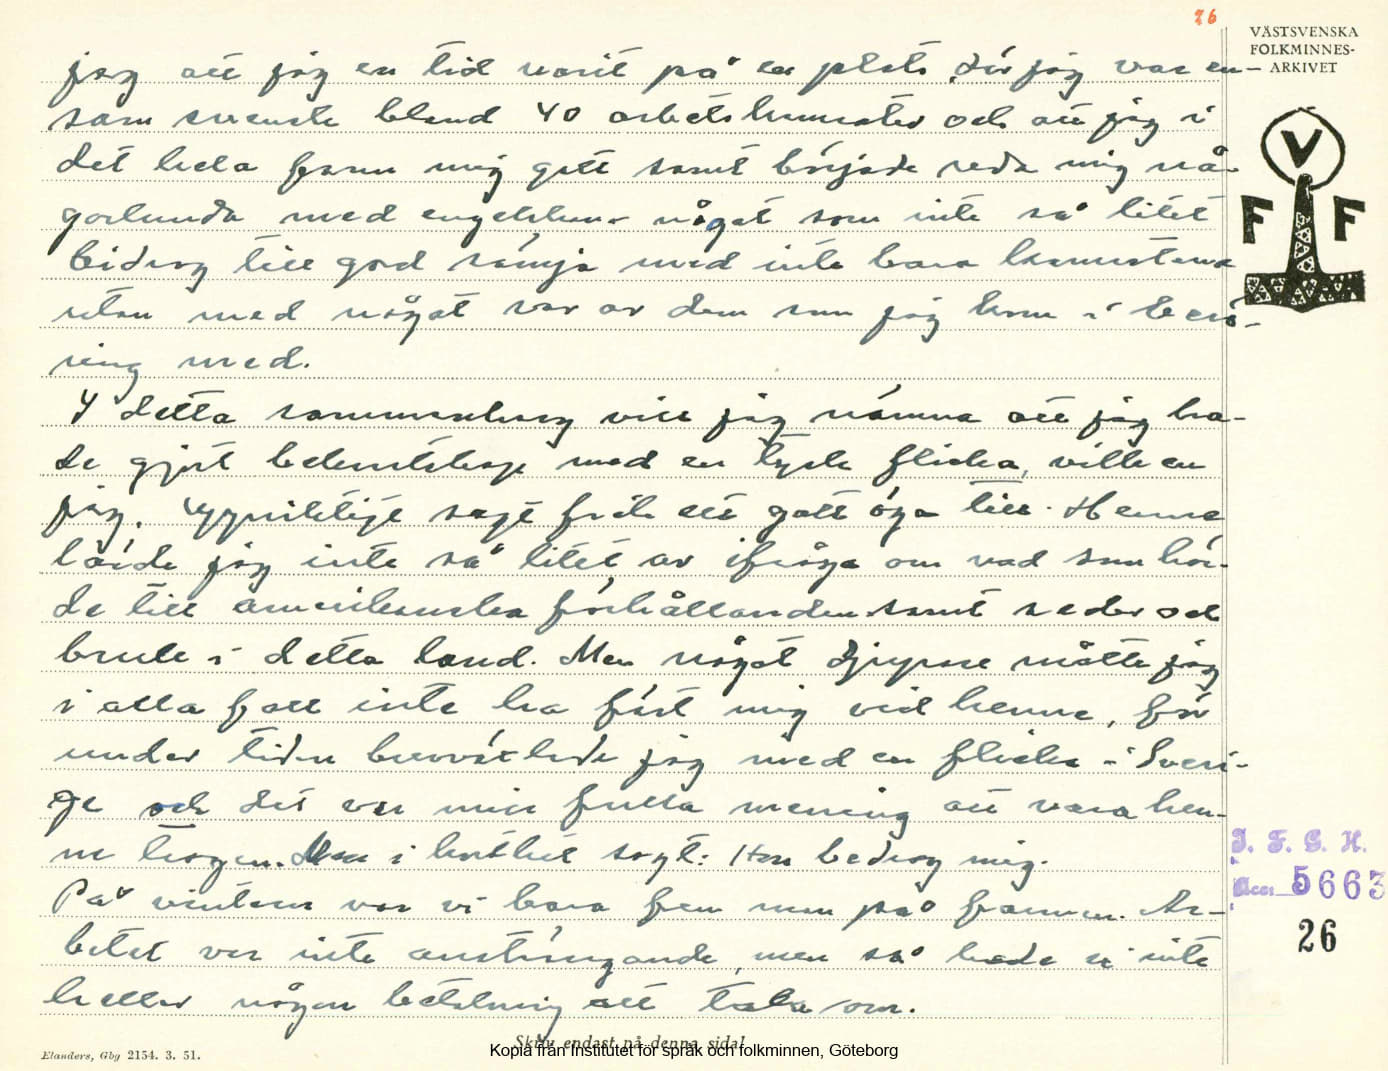 26
VÄSTSVENSKA
FOLKMINNES-
ARKIVET
V
F F
jag att jag en tid varit på en plats, där jag var en-
sam svensk bland 40 arbetskamrater och att jag i
det hela fann mig gott samt började reda mig nå-
gorlunda med engelskan - något som inte så litet
bidrog till god sämja med inte bara kamraterna
utan med något var av dem som jag kom i berö-
ring med.
I detta sammanhang vill jag nämna att jag ha-
de gjort bekantskap med en tysk flicka, vilken
jag, uppriktigt sagt fick ett gott öga till. Henne
lärde jag inte så litet av ifråga om vad som hör-
de till amerikanska förhållanden samt seder och
bruk i detta land. Men något djupare måtte jag
i alla fall inte ha fäst mig vid henne, för
under tiden brevväxlade jag med en flicka i Sveri-
ge och det var min fulla mening att vara hen-
ne trogen. Men i korthet sagt: Hon bedrog mig.
På vintern var vi bara fem man på farmen. Ar-
betet var inte ansträngande, men så hade vi inte
heller någon betalning att tala om.
I. F. G. H.
Acc. 5663
26
Skriv endast på denna sida!
Elanders, Gbg 2154. 3. 51.
Kopia från Institutet för språk och folkminnen, Göteborg